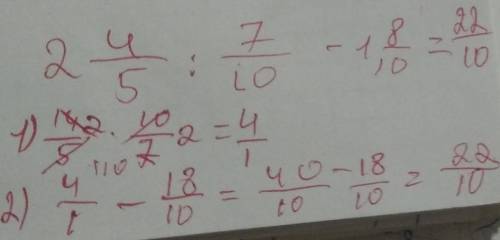 2 4/5 : 7/10 - 1 8/10 = 22/10
1) 14 2/5 1 · 10/7 2 = 4/1
2) 4/1 - 18/10 = 40/10 - 18/10 = 22/10